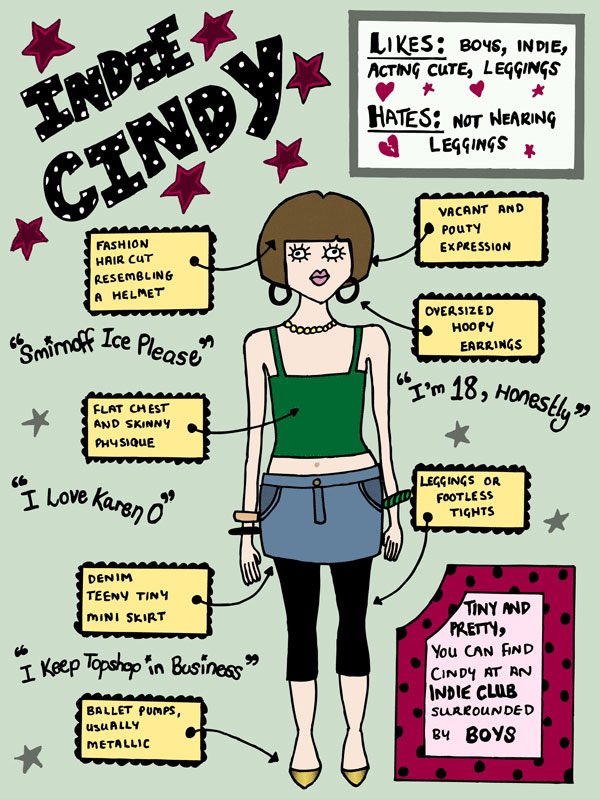 INDIE
CINDY
LIKES: BOYS, INDIE,
ACTING CUTE, LEGGINGS
HATES: NOT WEARING
LEGGINGS
FASHION
HAIR CUT
RESEMBLING
A HELMET
VACANT AND
POUTY
EXPRESSION
OVERSIZED
HOOPY
EARRINGS
"Smirnoff Ice Please"
"I'm 18, Honestly"
FLAT CHEST
AND SKINNY
PHYSIQUE
"I Love Karen O"
LEGGINGS OR
FOOTLESS
TIGHTS
DENIM
TEENY TINY
MINI SKIRT
"I Keep Topshop in Business"
BALLET PUMPS,
USUALLY
METALLIC
TINY AND
PRETTY,
YOU CAN FIND
CINDY AT AN
INDIE CLUB
SURROUNDED
BY BOYS